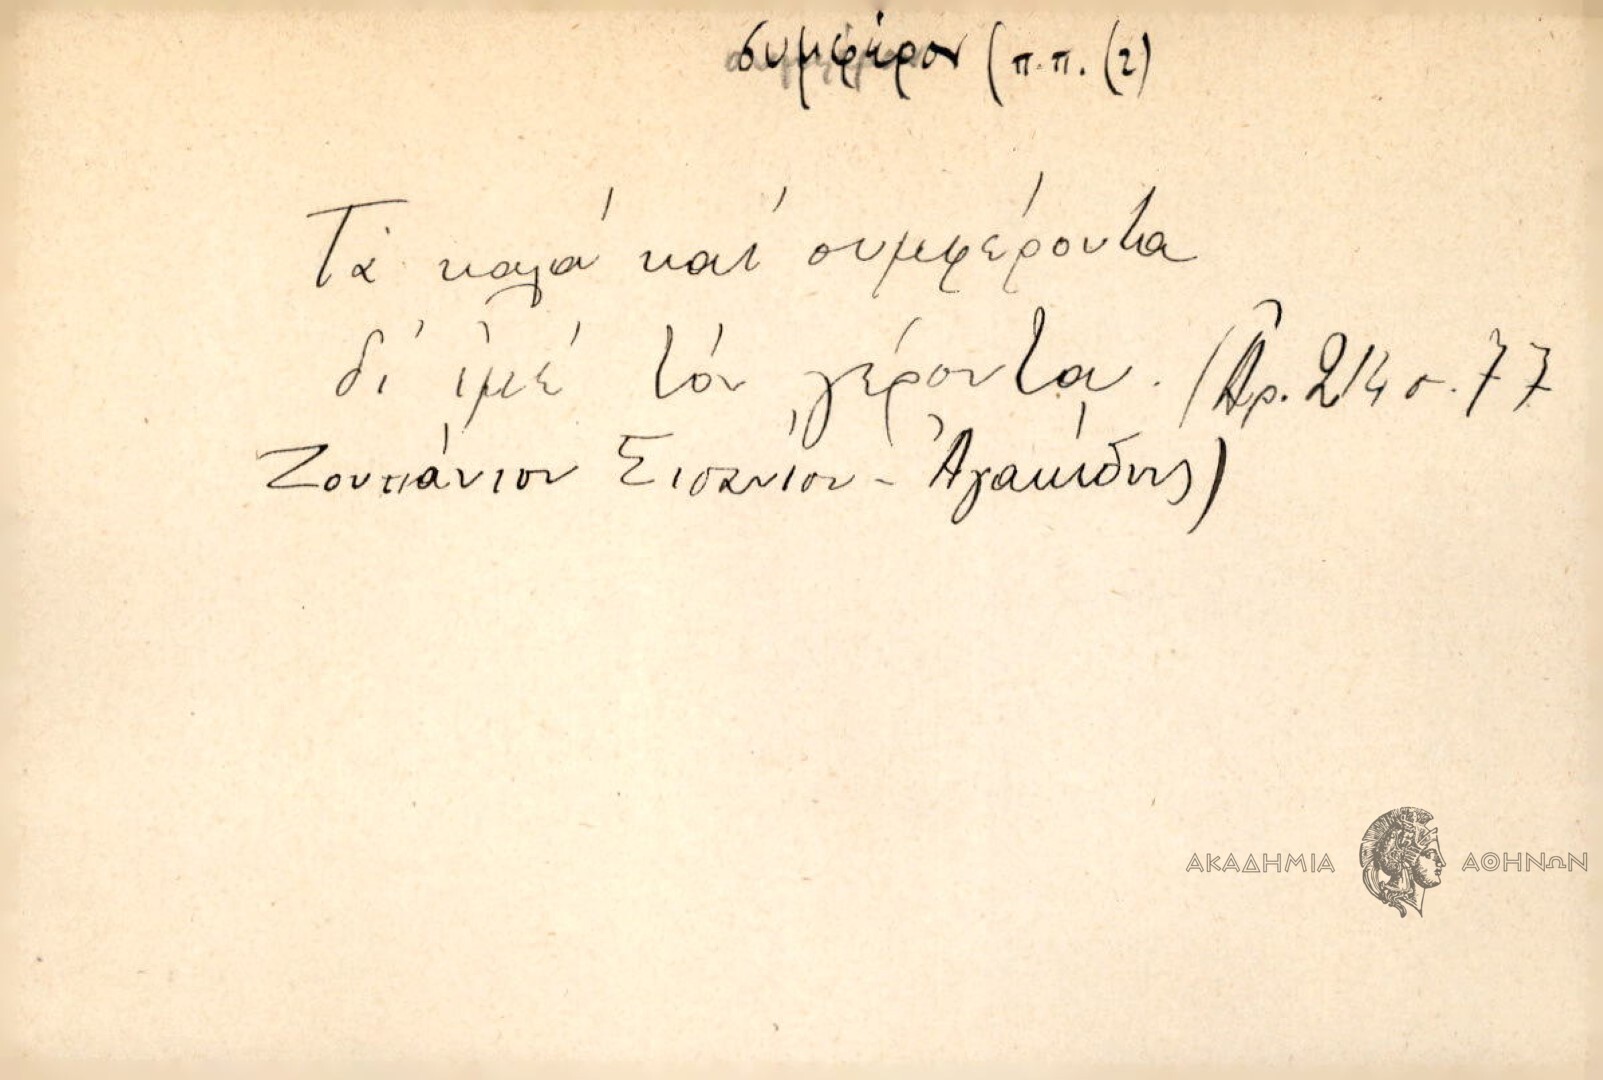 συμφέρον (π.π. (2)
Τά καλά καί συμφέροντα
δι' ἐμέ τόν γέροντα. (Ἀρ. 214 σ. 77
Ζουπάνιον Σισανίου - Ἀγακίδης)
ΑΚΑΔΗΜΙΑ ΑΘΗΝΩΝ